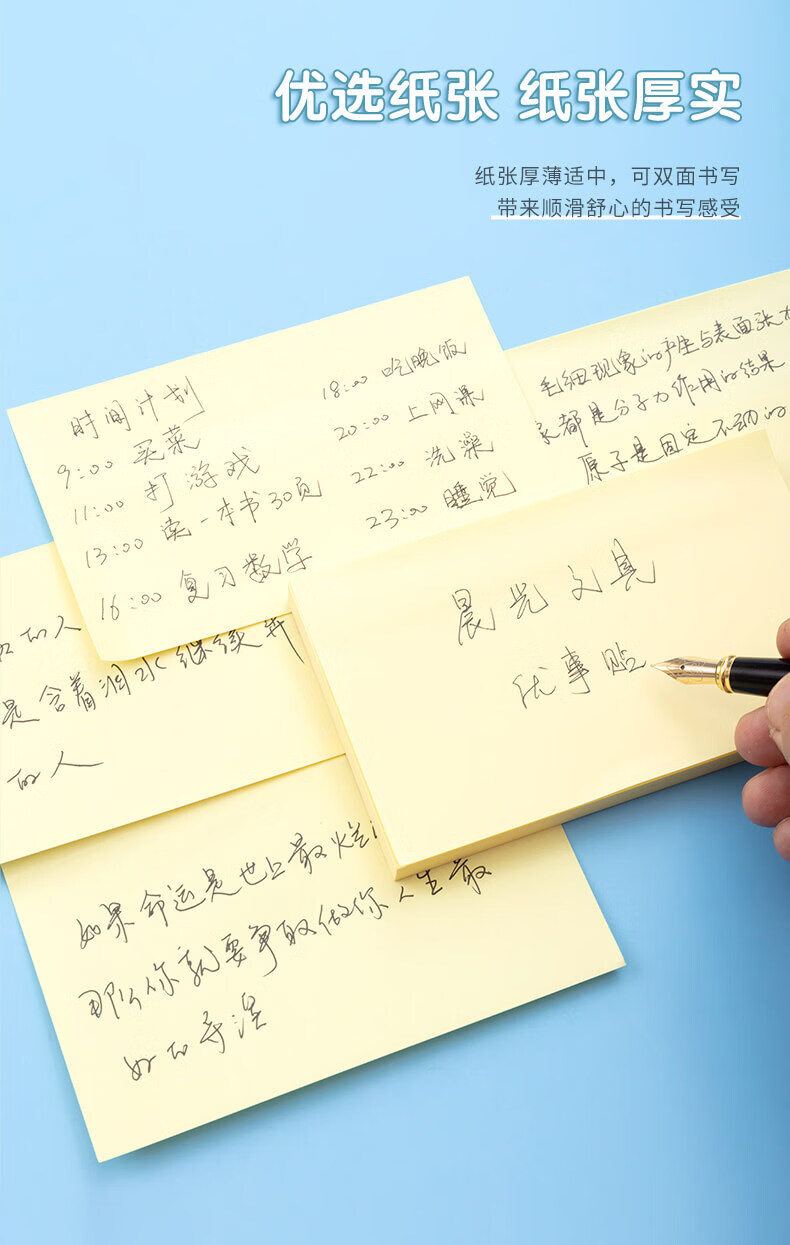 优选纸张 纸张厚实
纸张厚薄适中，可双面书写
带来顺滑舒心的书写感受
时间计划
9:00 买菜
11:00 打游戏
13:00 读一本书30页
16:00 复习数学
18:00 吃晚饭
20:00 上网课
22:00 洗澡
23:00 睡觉
毛细现象的产生与表面张
都是分子力作用的结果
原子是固定不动的
晨光文具
优事贴
的人
是含着泪水继续奔
的人
如果命运是世上最烂
那么你就要争取做你人生最
好的导演